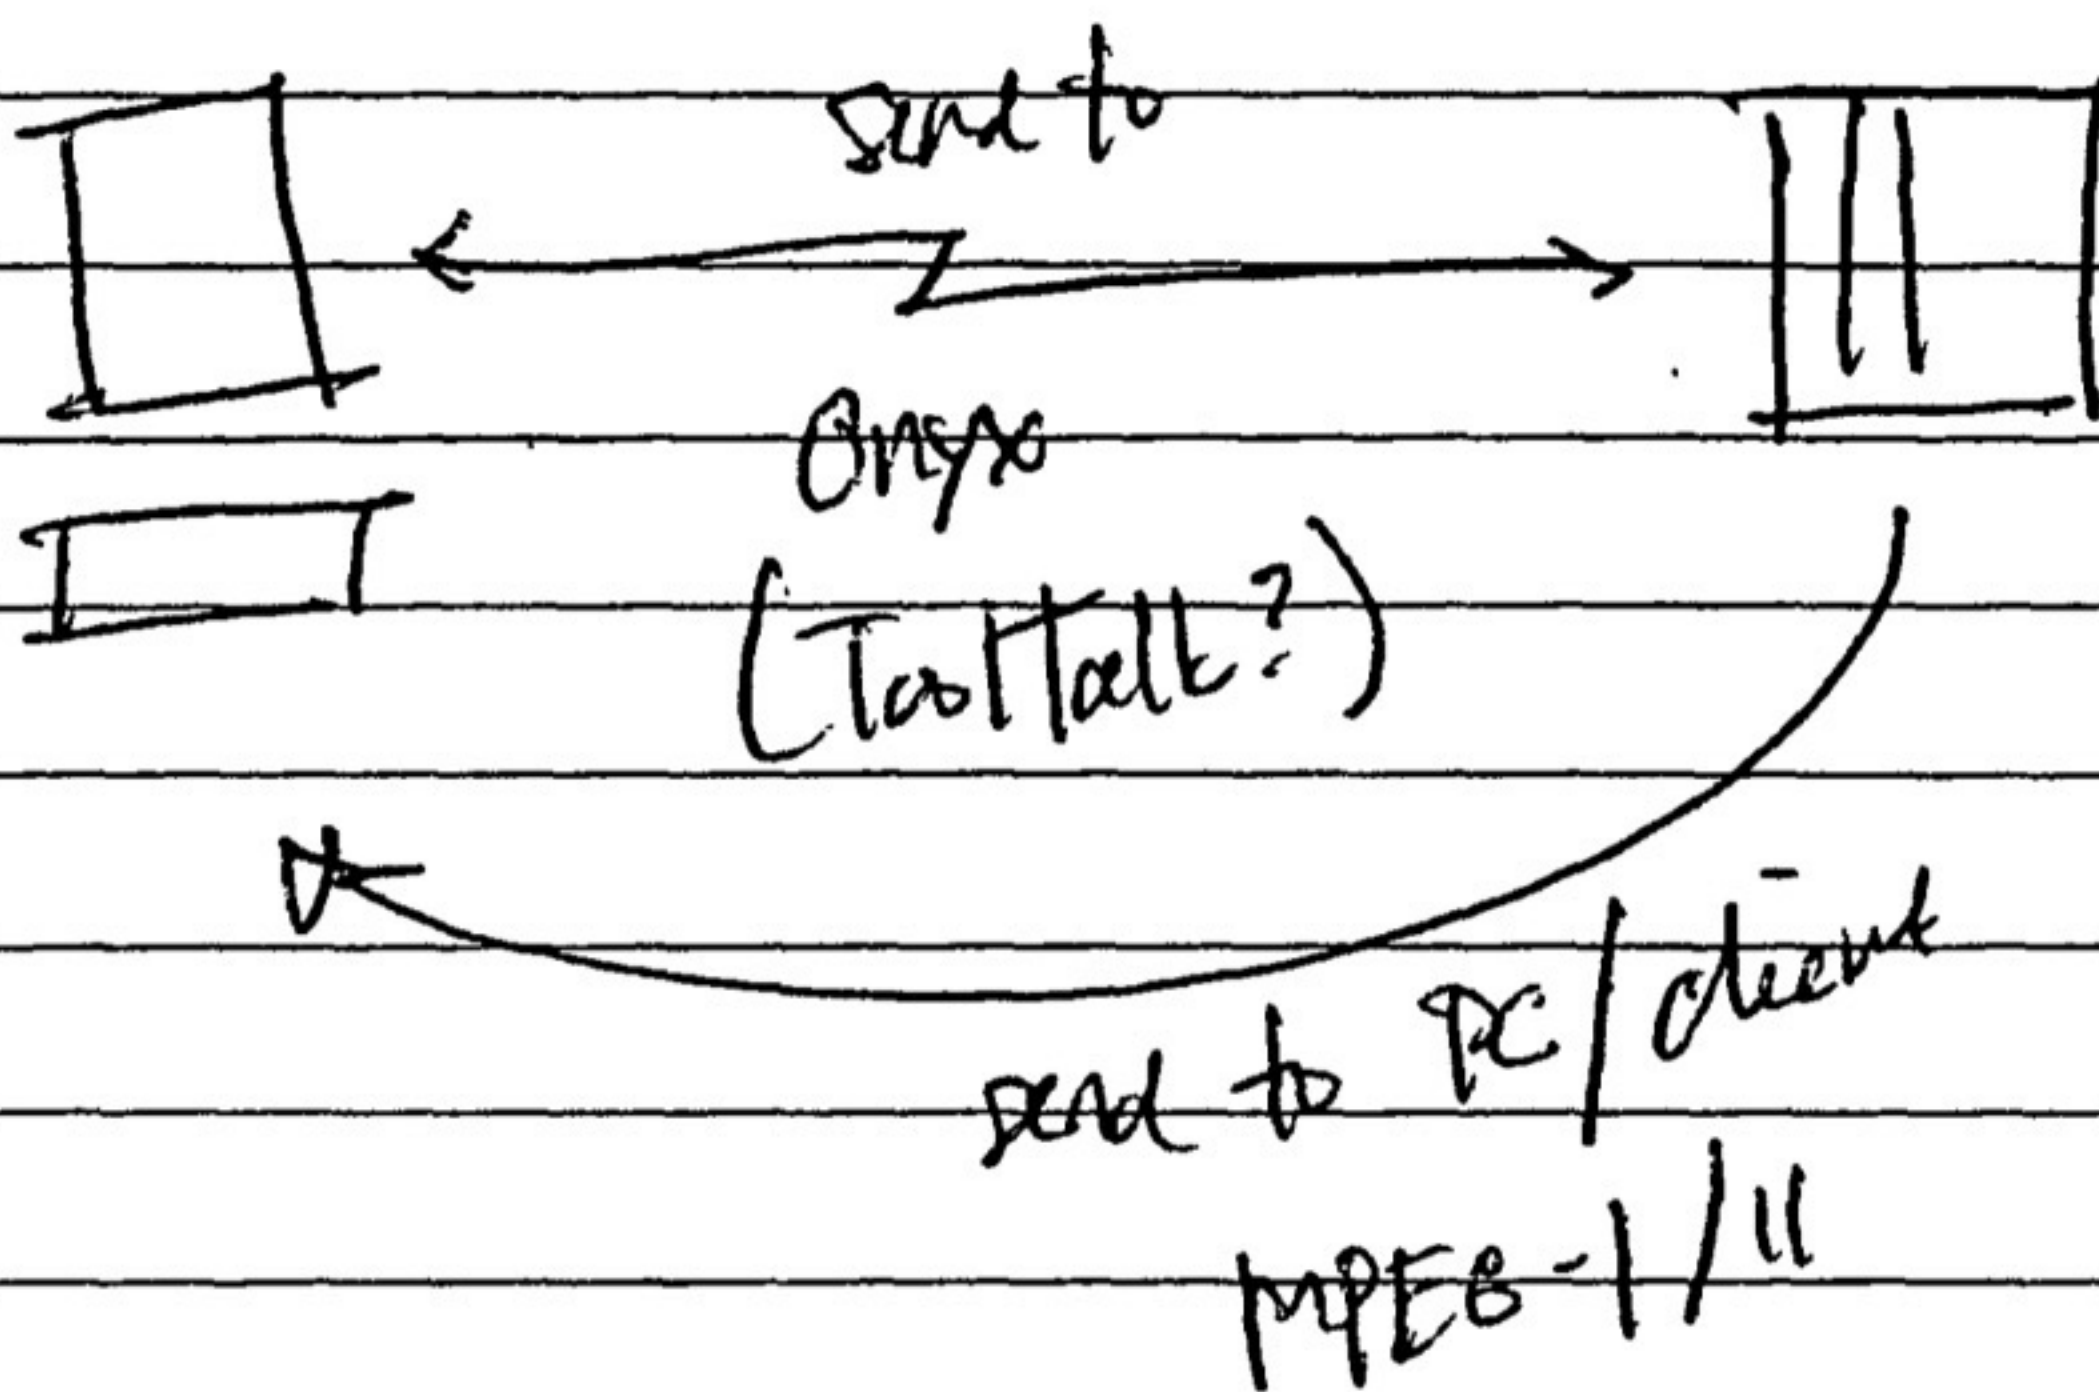 send to
Onyx
(ToolTalk?)
send to PC/client
MPEG-I/II